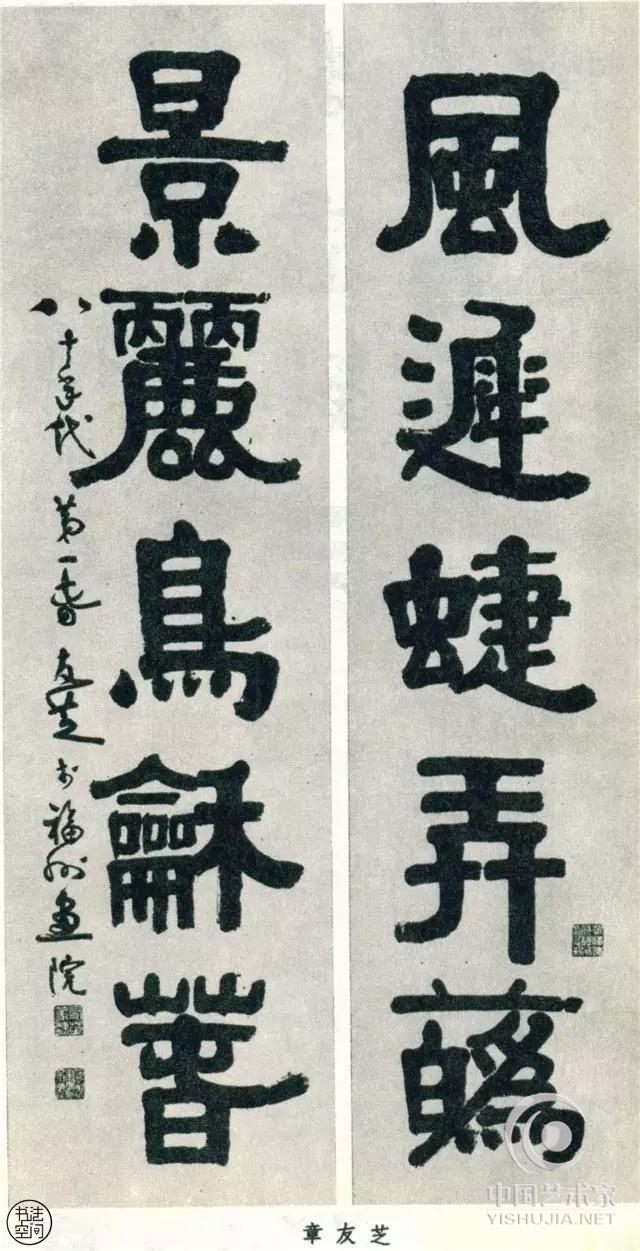 風遲蜨弄蘤
景麗鳥龢萅
八十年代第一春友芝书福州画院
书法
空间
章友芝
中国艺术家
YISHUJIA.NET